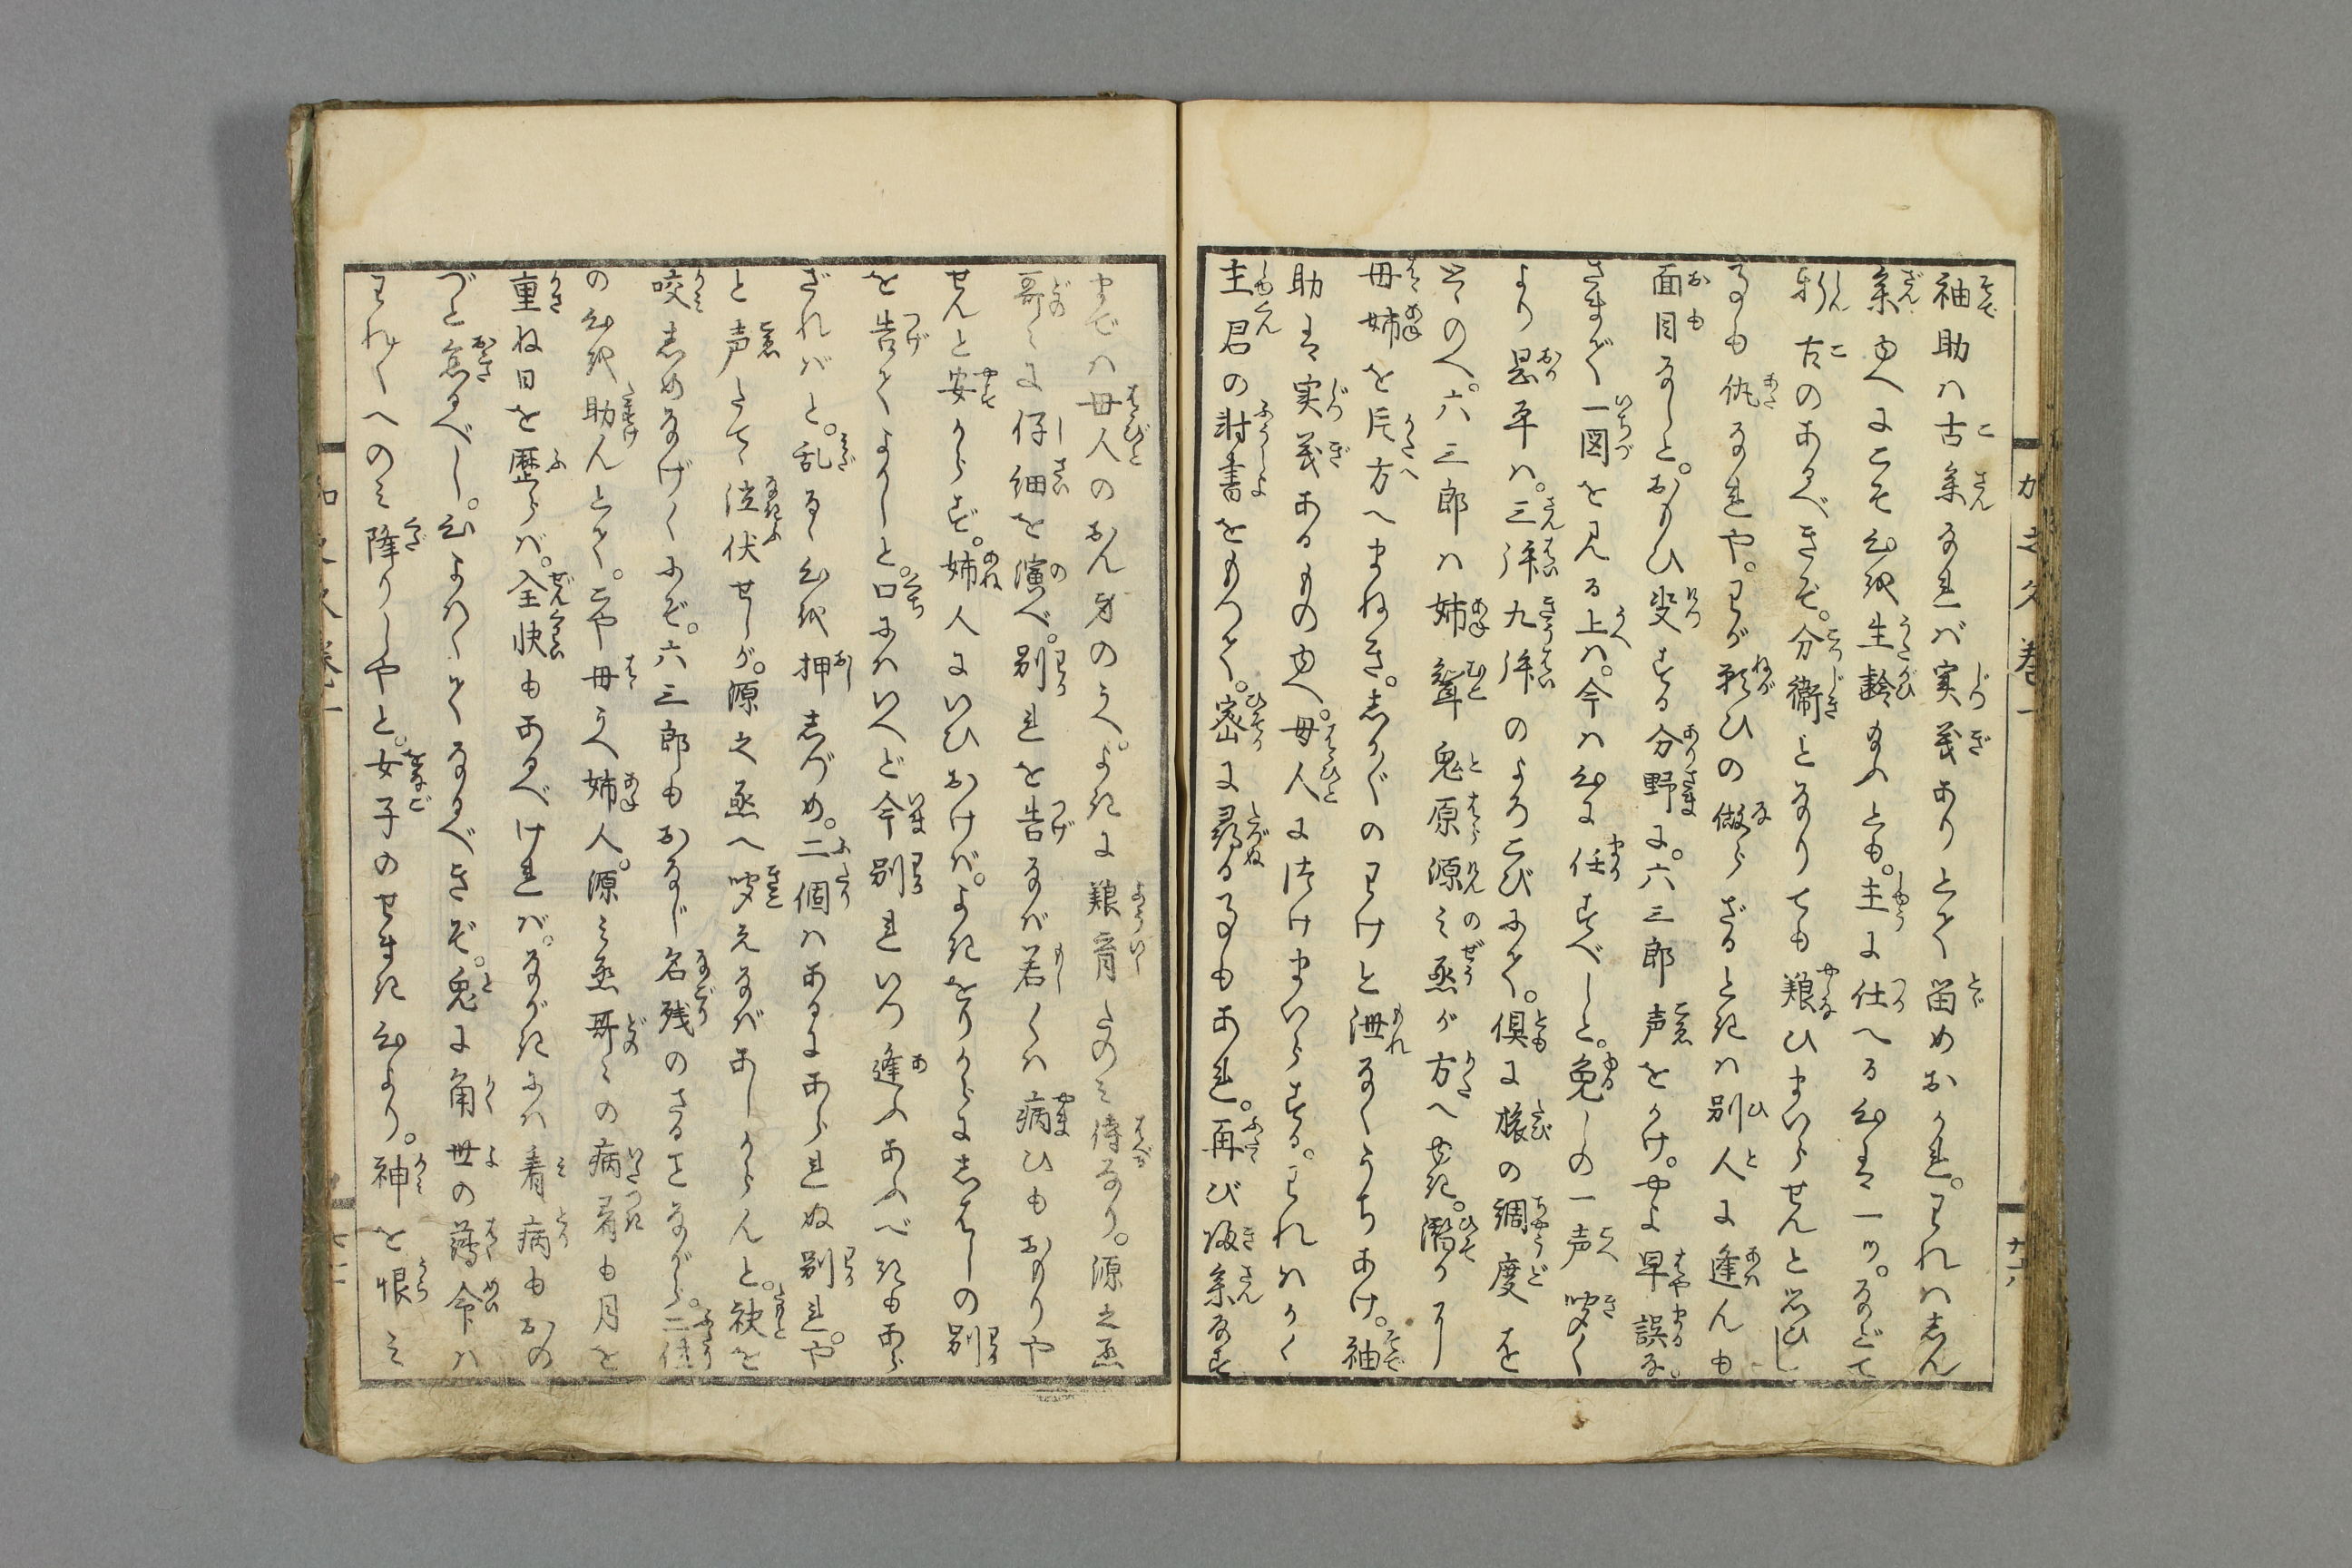 袖助ハ古参なれバ実義ありとて留めおかれ。われハしん
参ゆへにこそ心も生齢なふとも。主に仕へる心は一ツ。などて
新古のあるべきぞ。分衛となりても粮ひまいらせんと思ひし
事も仇なれや。わが願ひの做らざるときハ別人に逢んも
面目なしと。おもひ叟する分野に。六三郎声をかけ。やよ早誤な。
さまで一図を見る上ハ。今ハ心に任すべしと。免しの一声聞く
より恩平ハ。三拝九拝のよろこびにて。倶に旅の調度を
とゝのへ。六三郎ハ姉聟鬼原源之丞が方へ せき。潜かに
母姉を片方へまねき。しか〴〵のわけと洩なくうちあけ。袖
助は実義あるものゆへ。母人に附けまいらする。われハかく
主君の討書をもつて。密に尋る事もあれ。再び帰参なす
までハ母人のおん身のうへ。よきに粮育たのみ侍るなり。源之丞
哥々に仔細を演べ。別れを告なバ若くハ病ひもおもりや
せんと安からず。姉人にいひおけバ。よきをりからにしばしの別
を告てよかしと。口にハいへど今別れいつ逢ふあふべきもあら
ざれバと。乱るゝ心を押しづめ。二個ハあるにあられぬ別れ。や
と声たてゝ泣伏せしが。源之丞へ聞えなバあしからんと。袂を
咬しめなげくにぞ。六三郎もおなじ名残のさることながら。二個
の心を助んとて。こや母うへ姉人。源之丞哥々の病着も月を
重ね日を歴らバ。全快もあるべけれバ。ながきにハ看病もおの
づと怠るべし。心よわくてなるべきぞ。兎に角世の薄命ハ
われ〳〵へのミ降りしやと。女子のせまき心より。神を恨ミ